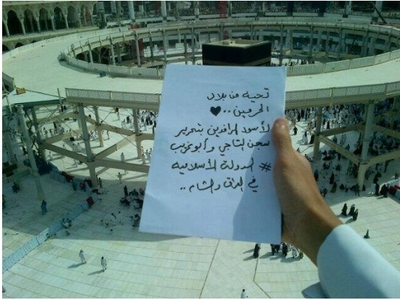 تحية من بلاد
الحرمين .. ♥
لأسود الرافدين بتحرير
سجن التاجي وأبو غريب
# الدولة الإسلامية
في العراق والشام ..